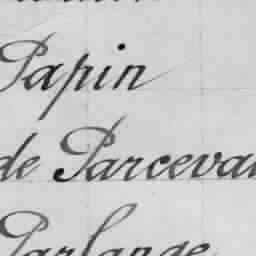 Papin
de Parceval
Parlange